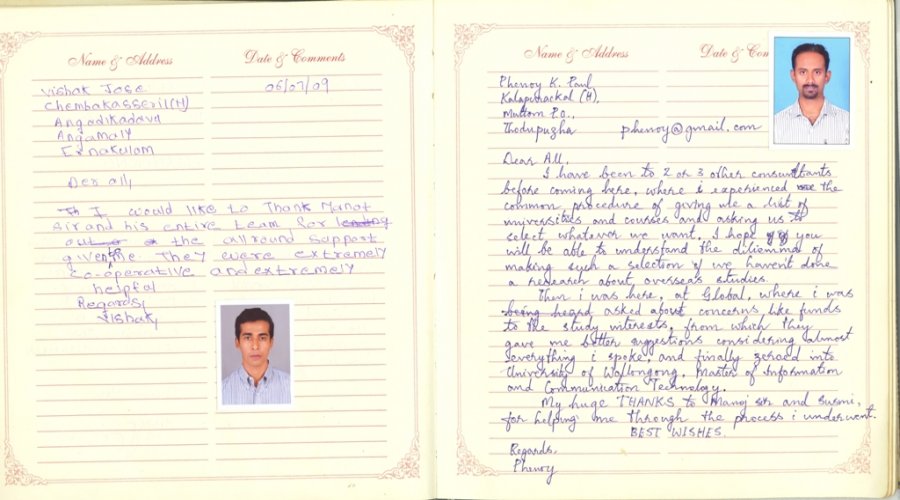 Name & Address
Date & Comments
Vishak Jose
06/07/09
Chembakasseril(H)
Angadikadavu
Angamaly
Ernakulam
Der all,
I would like to Thank Manot
Sir and his entire team for leading
out the allround support
given me. They were extremely
co-operative and extremely
helpful
Regards,
Vishak,
Name & Address
Date & Com
Phenoy K. Paul
Kalapurackal (H),
Muttom P.O.,
Thodupuzha
phenoy@gmail.com
Dear All,
I have been to 2 or 3 other consultants
before coming here, where i experienced the
common procedure of giving me a list of
universities and courses and asking us to
select whatever we want. I hope you
will be able to understand the dilemma of
making such a selection if we haven't done
a research about overseas studies.
Then i was here, at Global, where i was
being heard asked about concerns like funds
to the study interests, from which they
gave me better suggestions considering almost
everything i spoke, and finally zeroed into
University of Wollongong, Master of Information
and Communication Technology.
My huge THANKS to Manoj sir and Susmi,
for helping me through the process i underwent.
BEST WISHES.
Regards,
Phenoy